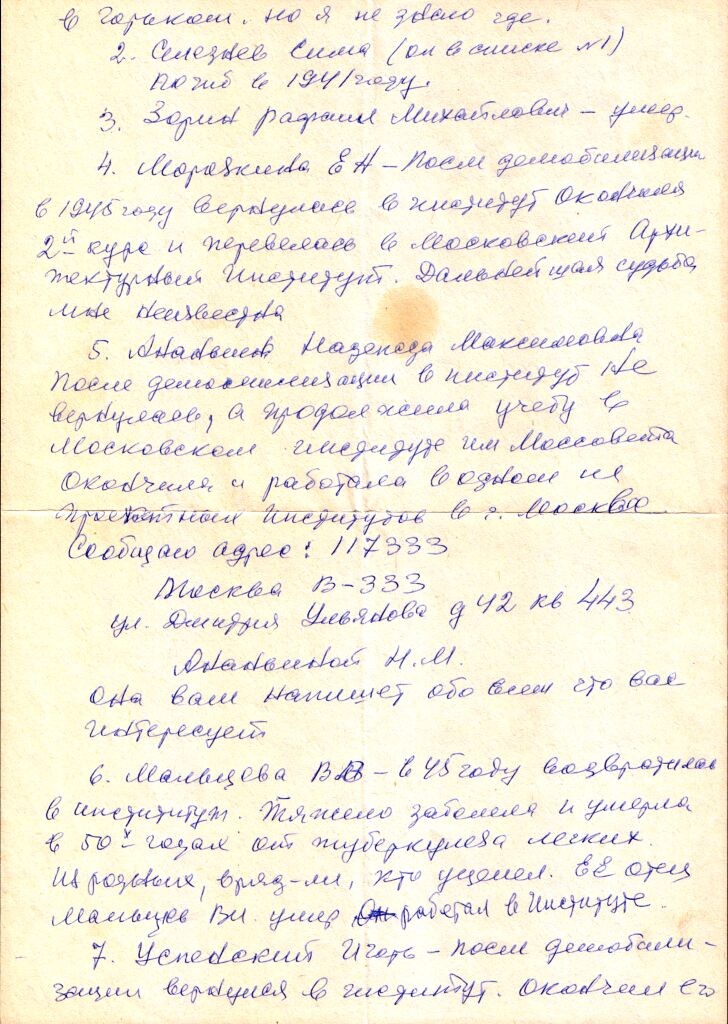 в Горьком. но я не знаю где.
2. Селезнев Сима (он в списке №1)
погиб в 1941 году.
3. Зорин Рафаил Михайлович – умер.
4. Морошкина Е Н – После демобилизации
в 1945 году вернулась в институт Окончила
2й курс и перевелась в Московский Архи-
тектурный Институт. Дальнейшая судьба
мне неизвестна
5. Ананьина Надежда Максимовна
После демобилизации в институт не
вернулась, а продолжила учебу в
Московском институте им Моссовета
Окончила и работала в одном из
проектных Институтов в г. Москва
Сообщаю адрес: 117333
Москва В-333
ул. Дмитрия Ульянова д 42 кв 443
Ананьиной Н.М.
Она вам напишет обо всем что вас
интересует
6. Мальцева В – в 45 году возвратилась
в институт. Тяжело заболела и умерла
в 50х годах от туберкулеза легких.
Из родных, вряд-ли, кто уцелел. ЕЕ отец
Мальцев Вл. умер работал в Институте.
7. Успенский Игорь – после демобили-
зации вернулся в институт. Окончил его